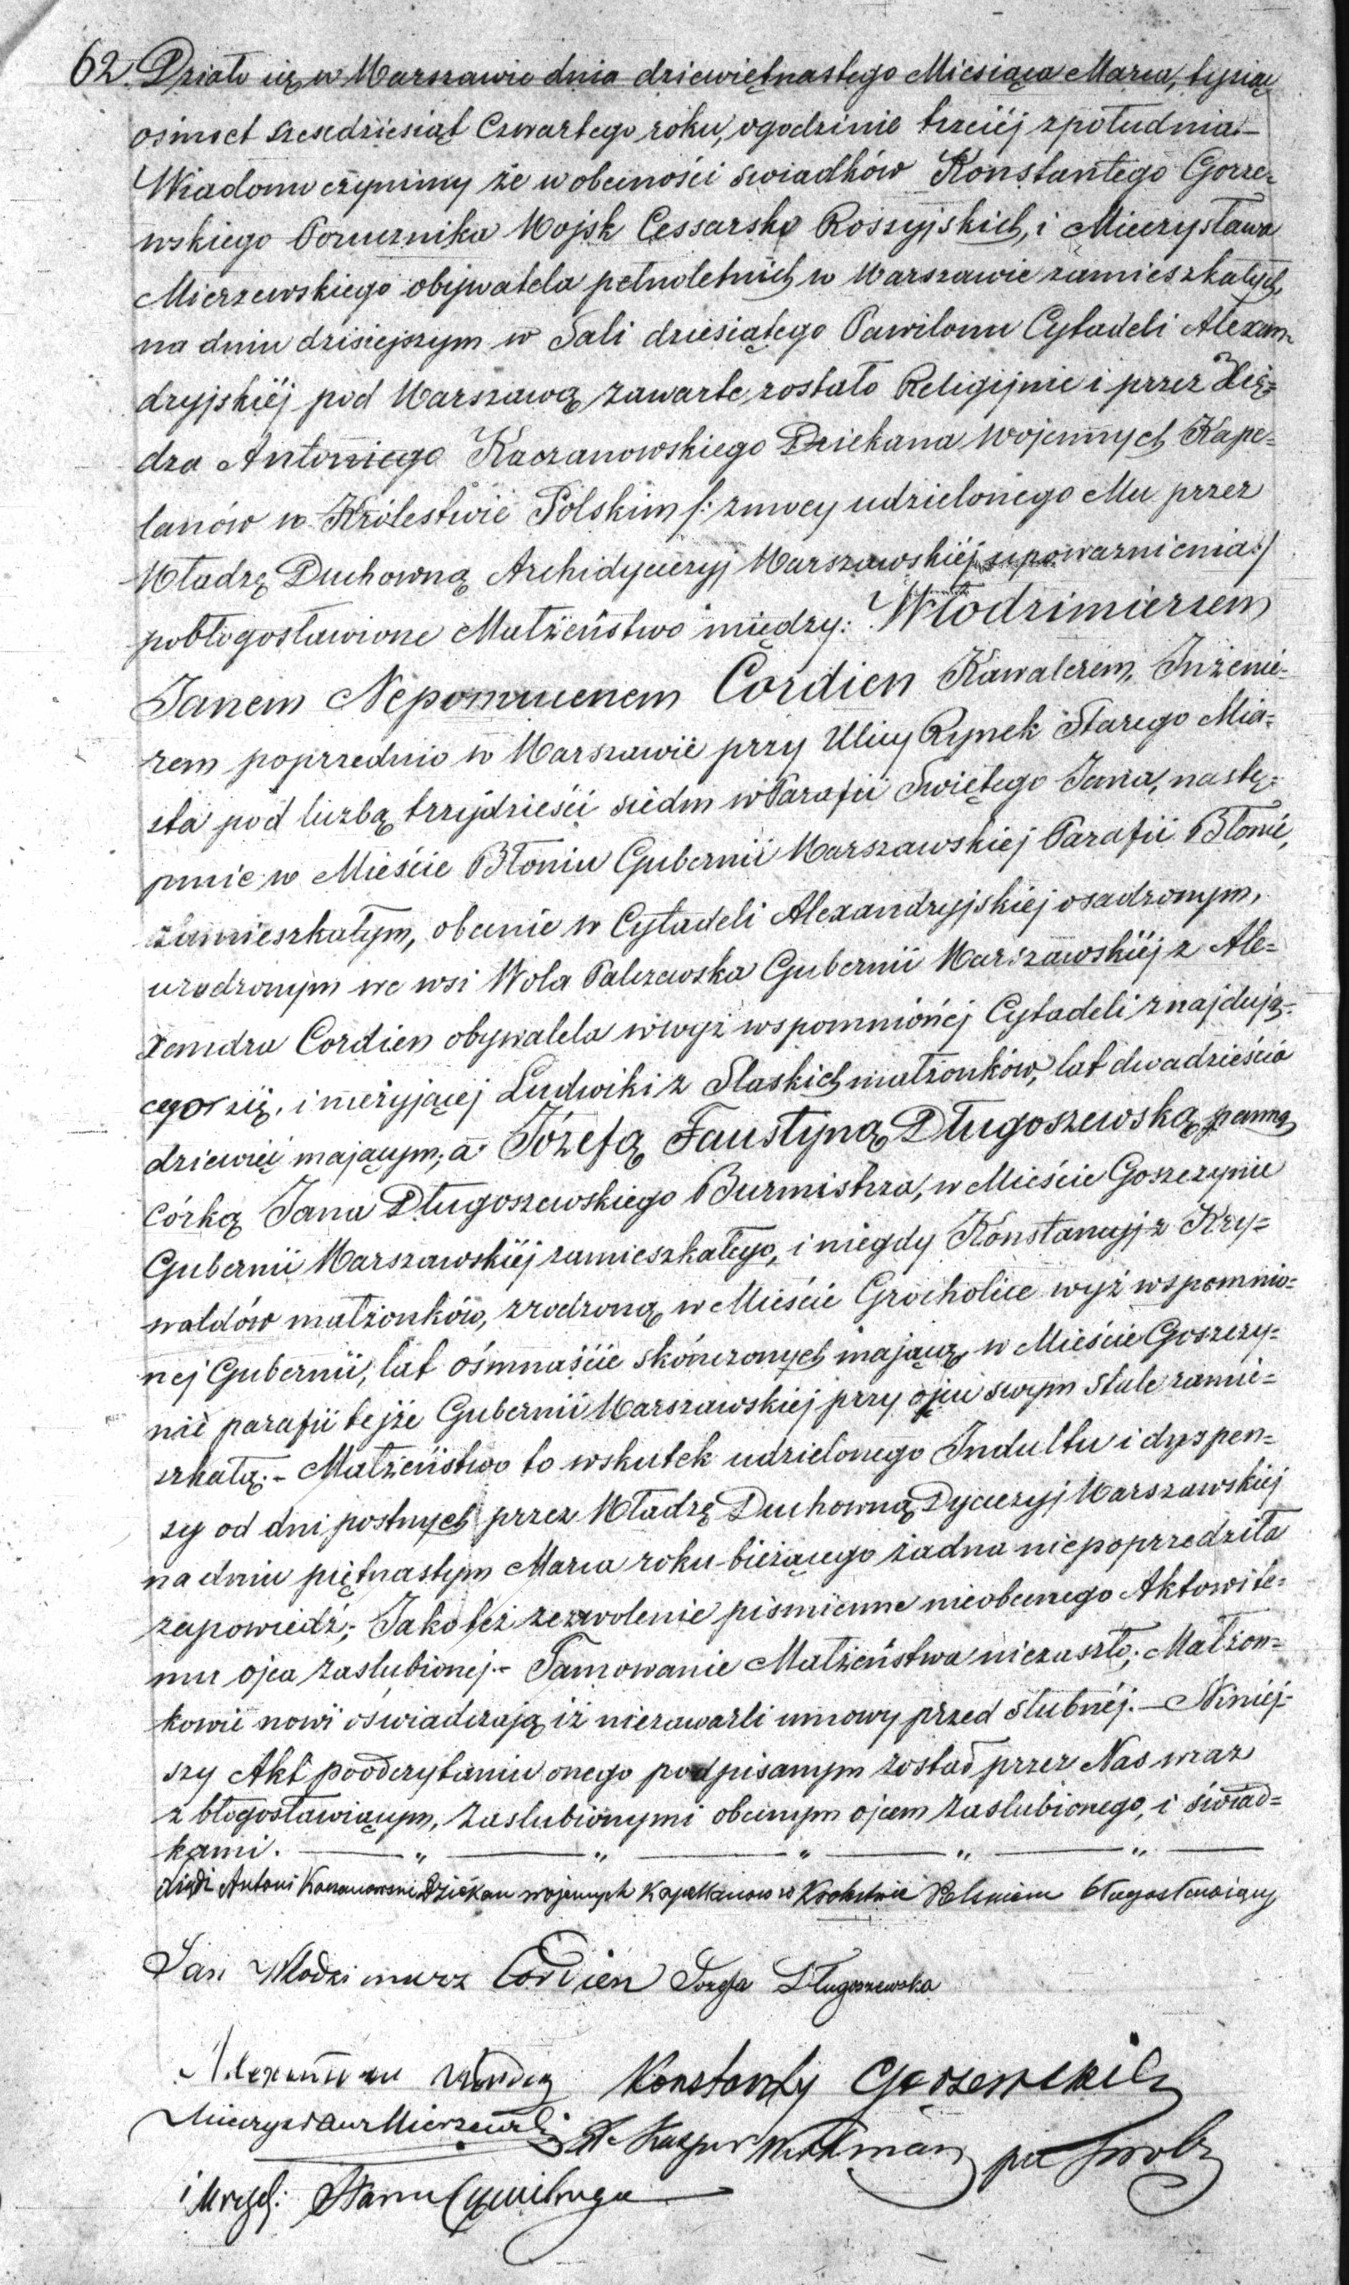 62. Działo się w Warszawie dnia dziewiętnastego Miesiąca Marca, tysiąc
ośmset szesćdziesiąt Czwartego roku, ogodzinie trzeciéj zpołudnia.–
Wiadomo czynimy że w obecności swiadków Konstantego Gorze=
wskiego Porucznika Wojsk Cessarsko Rossyjskich, i Mieczysława
Mierzewskiego obywatela pełnoletnich w Warszawie zamieszkałych,
na dniu dzisiejszym w Sali dziesiątego Pawilonu Cytadeli Alexan=
dryjskiéj pod Warszawą zawarte zostało Religijnie i przez Xię=
dza Antoniego Kaczanowskiego Dziekana Wojennych Kape=
lanów w Królestwie Polskim /: zmocy udzielonego Mu przez
Władzę Duchowną Archidyecezyj Warszawskiéj upoważnienia:/
pobłogosławione Małżeństwo między: Włodzimierzem
Janem Nepomucenem Cordien Kawalerem, Inżenie=
rem poprzednio w Warszawie przy Ulicy Rynek Starego Mia=
sta pod liczbą trzydzieści siedm w Parafii Swiętego Jana, nastę=
pnie w Mieście Błoniu Gubernii Warszawskiej Parafii Błonie,
zamieszkałym, obecnie w Cytadeli Alexandryjskiej osadzonym,
urodzonym we wsi Wola Palczewska Gubernii Warszawskiéj z Ale=
xandra Cordien obywatela wwyż wspomnionéj Cytadeli znajdują=
cego się, i nieżyjącej Ludwiki z Slaskich małżonków, lat dwadzieścia
dziewięć mającym; a Józefą Faustyną Długoszewską panną
córką Jana Długoszewskiego Burmistrza, w Mieście Goszczynie
Gubernii Warszawskiéj zamieszkałego, i niegdy Konstancyj z Kry=
waldów małżonków, zrodzoną w Mieście Grocholice wyż wspomnio=
nej Gubernii, lat ośmnaście skończonych mającą w Mieście Goszczy=
nie parafii tejże Gubernii Warszawskiej przy ojcu swym stale zamie=
szkałą.– Małżeństwo to wskutek udzielonego Indultu i dyspen=
sy od dni postnych przez Władzę Duchowną Dyecezyj Warszawskiej
na dniu piętnastym Marca roku bieżącego żadna niepoprzedziła
zapowiedź; Jako też zezwolenie piśmienne nieobecnego Aktowi te=
mu ojca zaslubionej.– Tamowanie Małżeństwa niezaszło; Małżon=
kowie nowi oświadczają iż niezawarli umowy przed slubnéj.– Niniej=
szy Akt poodczytaniu onego podpisanym został przez Nas wraz
z błogosławiącym, zaslubionymi obecnym ojcem zaslubionego, i świad=
kami.
Xiądz Antoni Kaczanowski Dziekan wojennych Kapellanow w Krolestwie Polskiem błogosławiący
Jan Włodzimierz Cordien Jozefa Długoszewska
Alexander Cordien Konstanty Gorzewski
Mieczysław Mierzewski X. Kacper